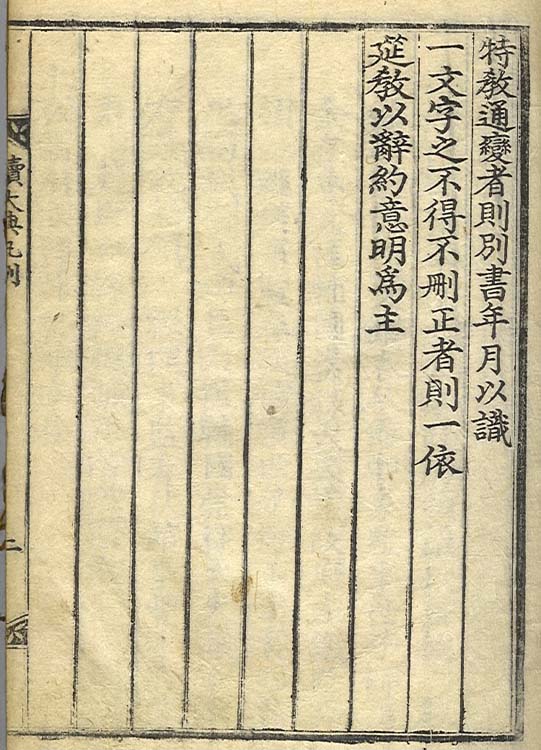 特敎通變者則別書年月以識
一文字之不得不刪正者則一依
筵敎以辭約意明爲主
續大典凡例
二